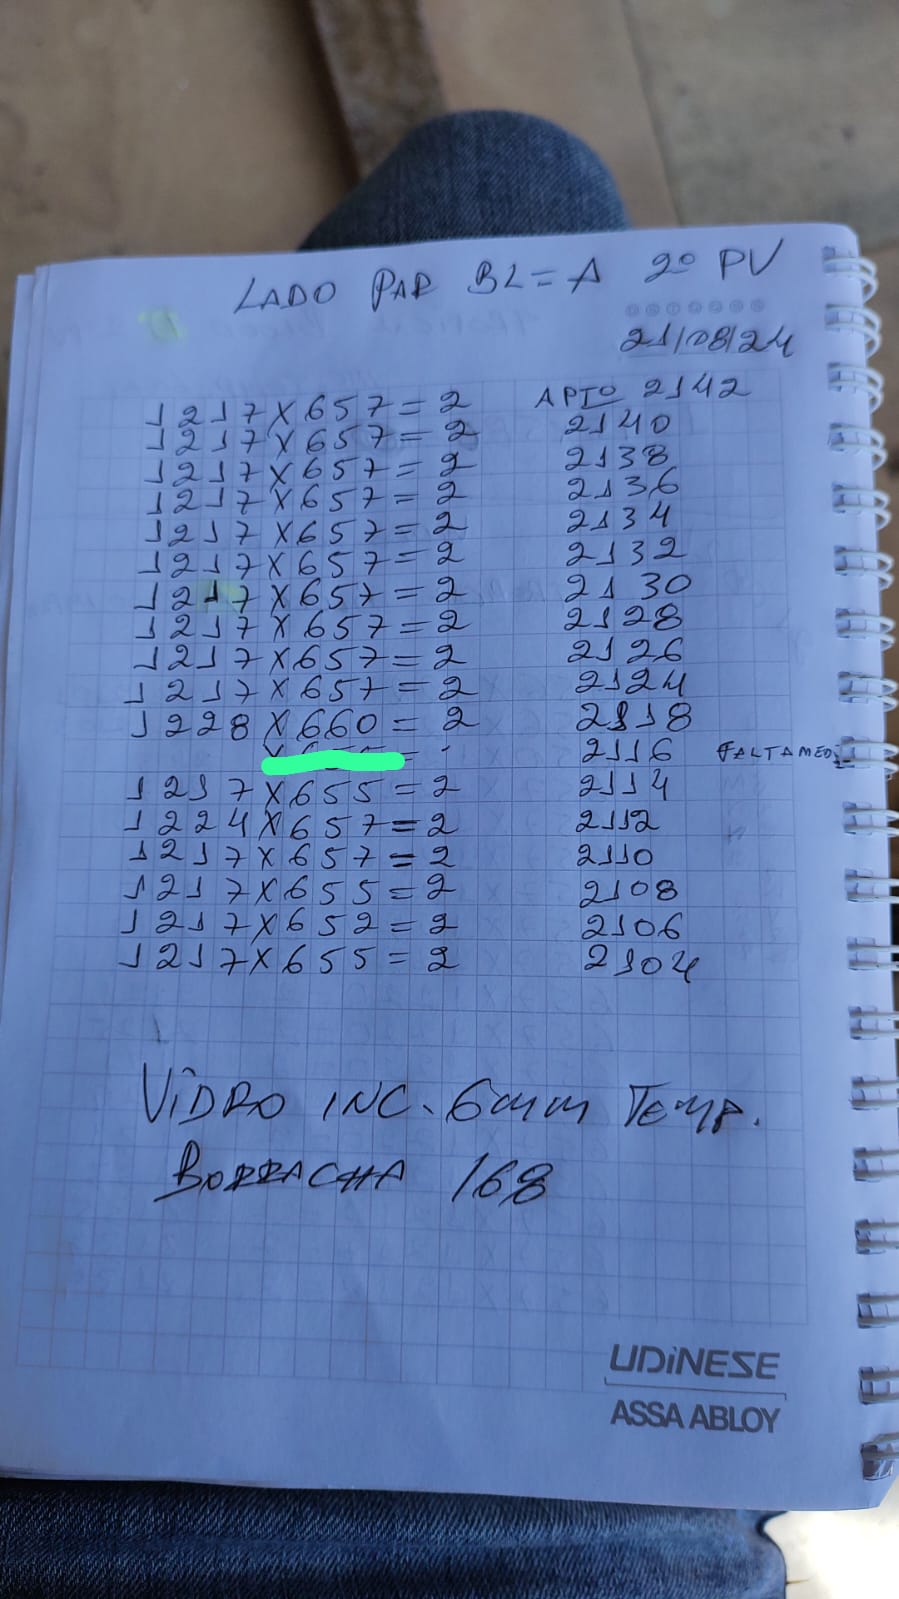 LADO PAR BL=A 2º PV
21/08/24
1217X657=2 APTO 2142
1217X657=2 2140
1217X657=2 2138
1217X657=2 2136
1217X657=2 2134
1217X657=2 2132
1217X657=2 2130
1217X657=2 2128
1217X657=2 2126
1217X657=2 2124
1228X660=2 2118
2116 FALTA MED
1217X655=2 2114
1224X657=2 2112
1217X657=2 2110
1217X655=2 2108
1217X652=2 2106
1217X655=2 2104
VIDRO INC. 6mm TEMP.
BORRACHA 168
UDINESE
ASSA ABLOY